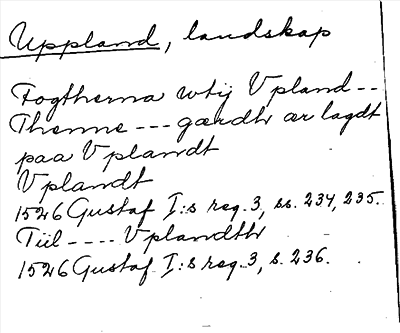 Uppland, landskap
Fogtherna wtij Vpland--
Thenne---gærdh ær lagdt
paa Vplandt
Vplandt
1526 Gustaf I:s reg. 3, ss. 234, 235.
Tiil----Vplandth
1526 Gustaf I:s reg. 3, s. 236.